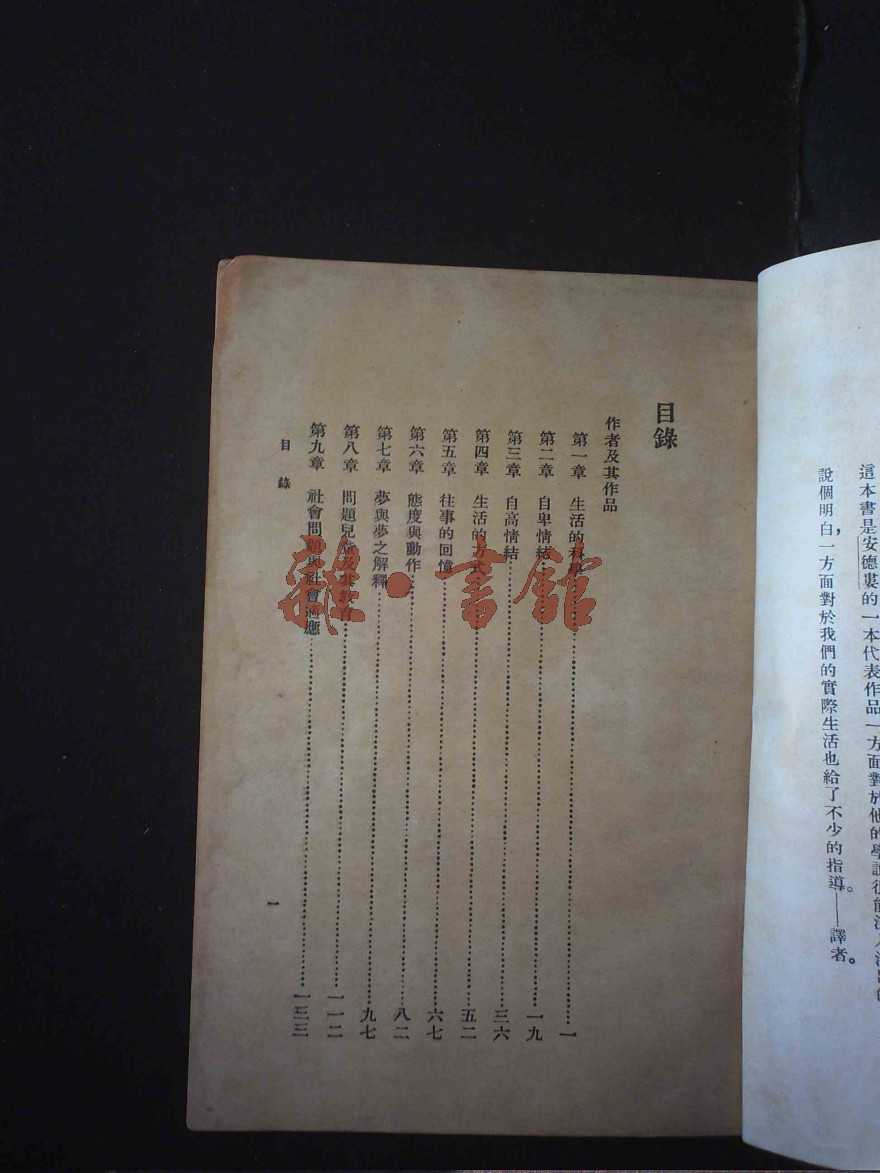 這本書是安德婁的一本代表作品一方面對於他的學說很能深入淺出的
說個明白，一方面對於我們的實際生活也給了不少的指導。——譯者。
目錄
作者及其作品
第一章 生活的科學……一
第二章 自卑情結……一九
第三章 自高情結……三六
第四章 生活的方式……五二
第五章 往事的回憶……六七
第六章 態度與動作……八二
第七章 夢與夢之解釋……九七
第八章 問題兒童及其教育……一一二
第九章 社會問題與社會適應……一三三
目錄
一
雜·書館